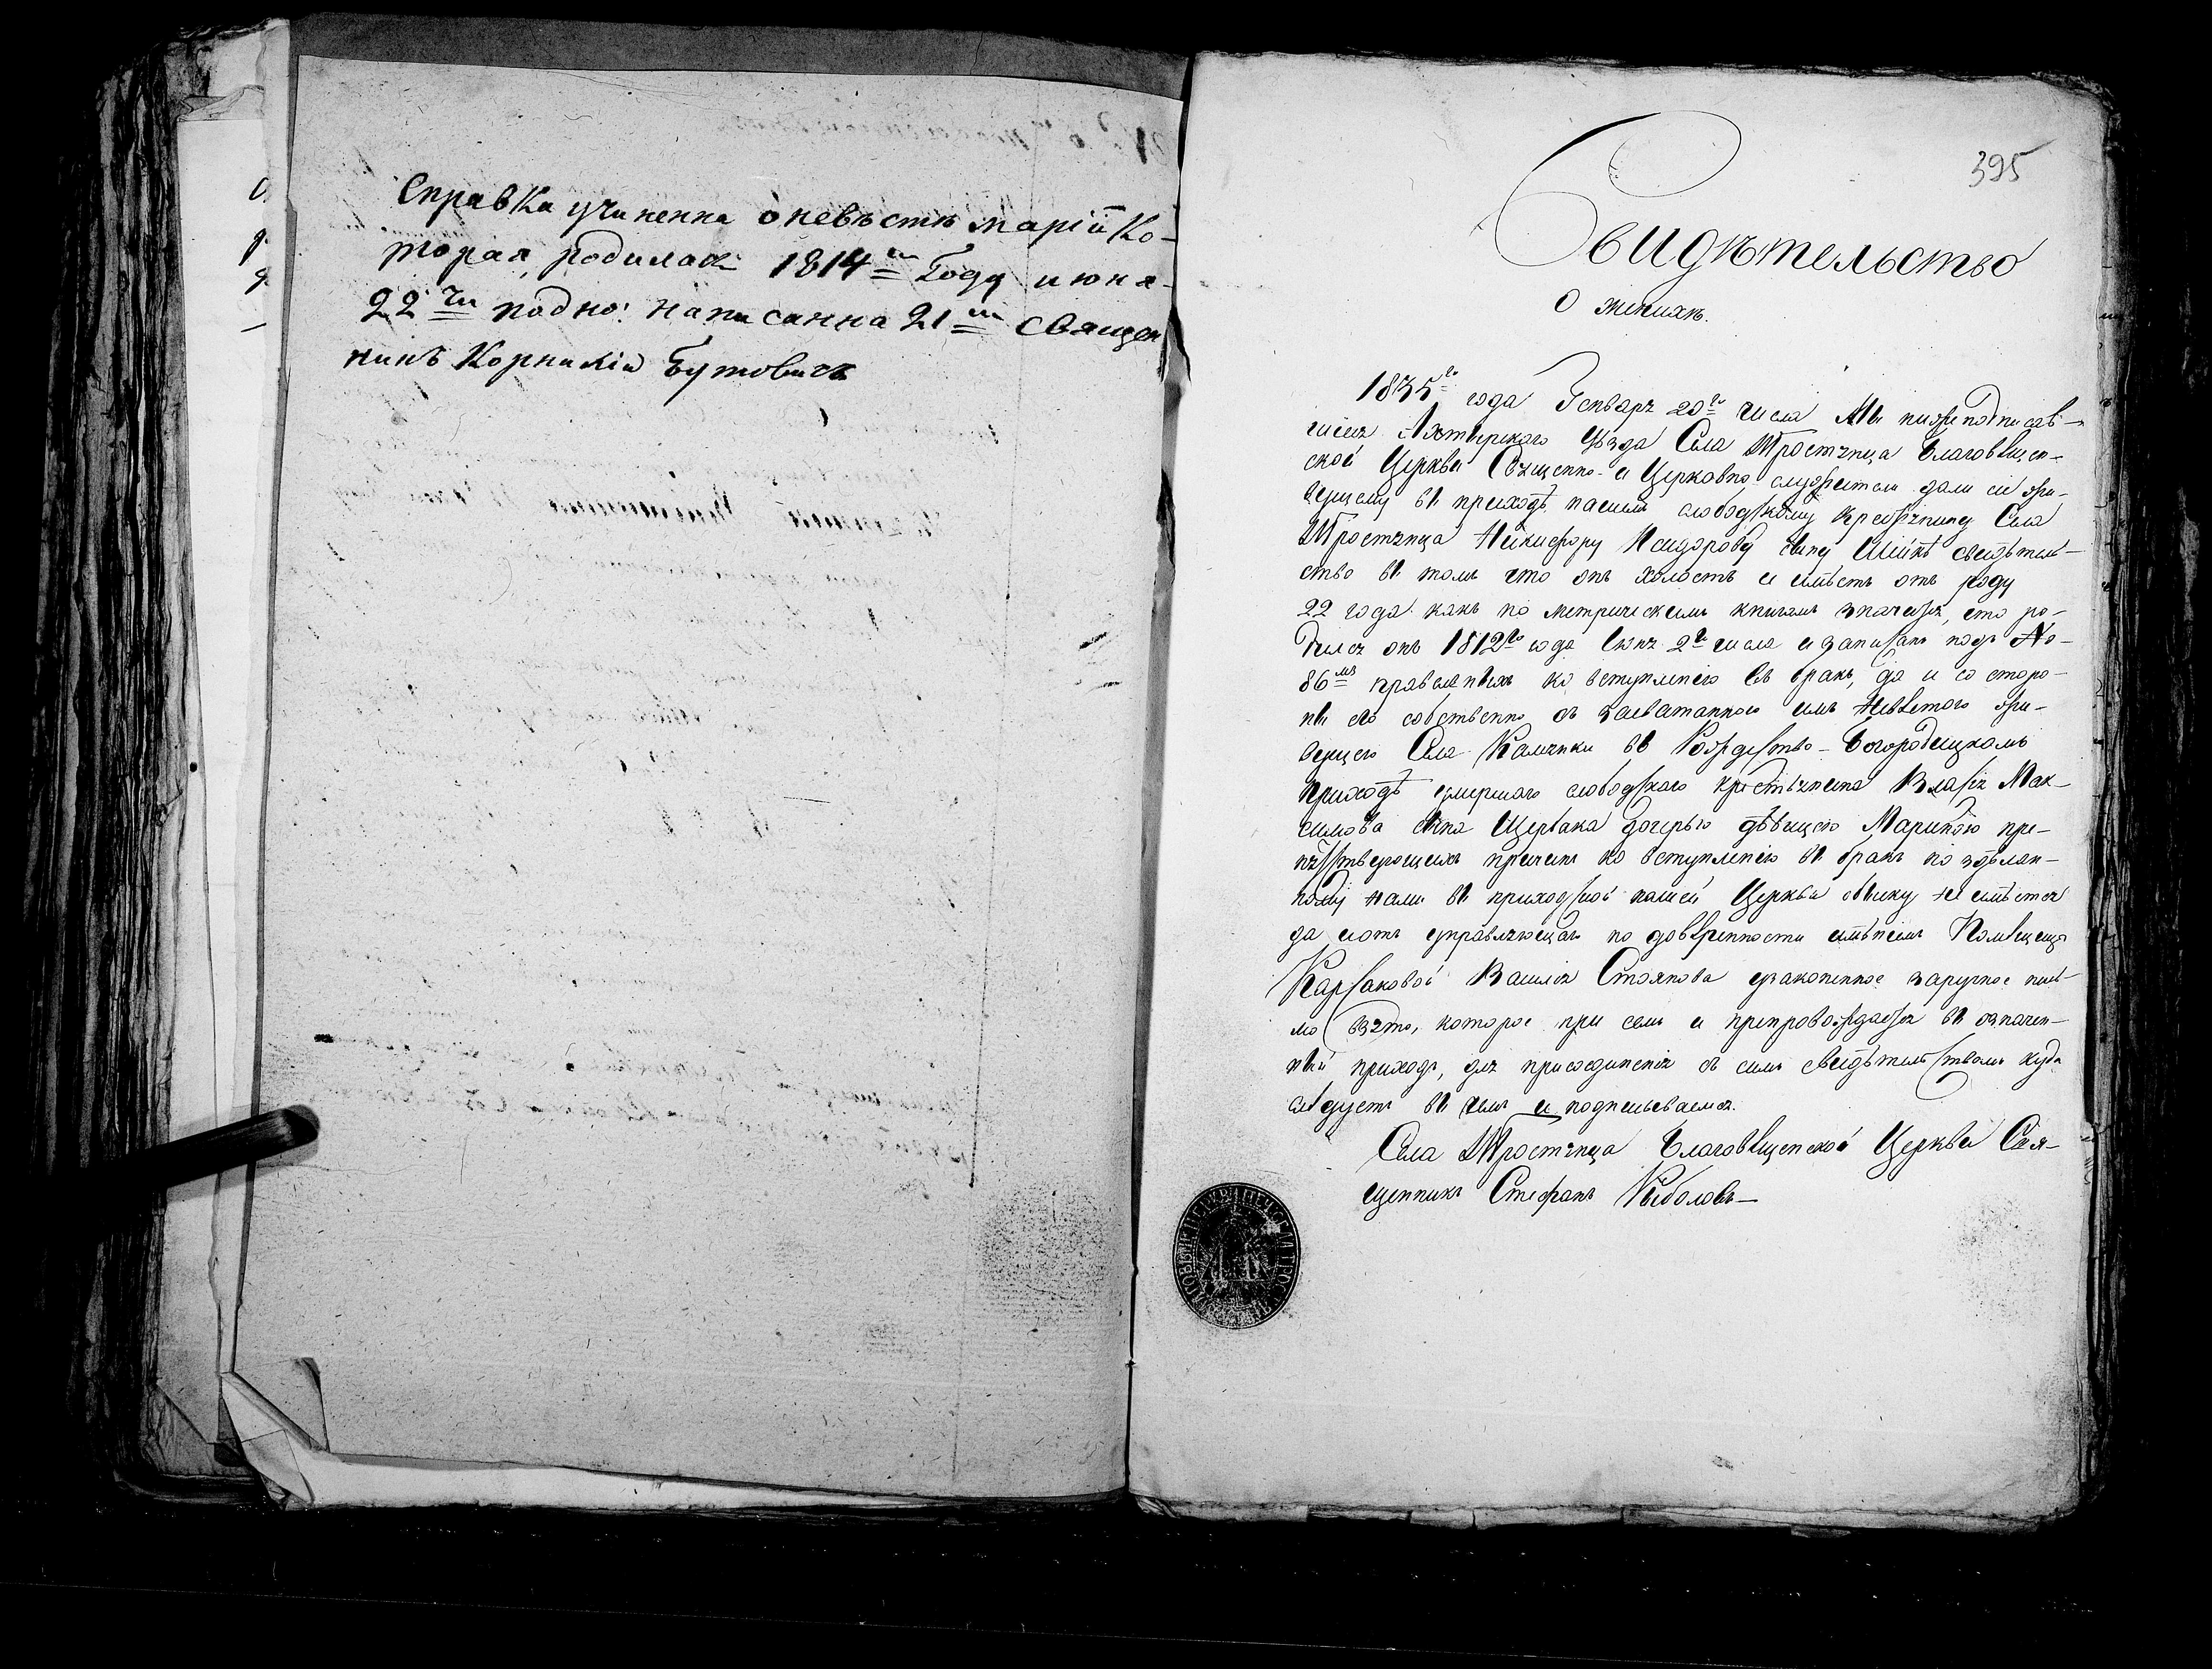 Справка учиненна о невѣстѣ маріи Ко-
торая родилась 1814го Году июня
22 чи подно: написанна 21м Священ
никъ Корнилій Бутовичъ
395
Свидѣтельство
О женихѣ.
1835го года Генваря 20го числа Мы нижеподписав-
шіеся Ахтырского уѣзда Села Тростянца Благовѣщен-
ской Церкви Священно- и Церковно-служители дали сіе жи-
вущему въ приходѣ нашемъ слободскому крестьянину Села
Тростянца Никифору Исидорову сыну свидѣтель-
ство въ томъ что онъ холостъ и имѣетъ отъ роду
22 года какъ по метрическимъ книгамъ значится, что ро-
дился онъ 1812го года Іюня 2го числа и записанъ подъ No
86мъ ко вступленію въ бракъ, да и со сторо-
ны его собственно съ засватанною имъ невѣстою жи-
вущею Села Камянки въ Рождество-Богородицкомъ
приходѣ умершаго слободскаго крестьянина Власія Мак-
симова сына Щербака дочерью дѣвицею Мариною пре-
пятствующихъ причинъ ко вступленію въ бракъ по здѣлан-
ному нами въ приходской нашей Церкви обыску не имѣется
да и отъ управляющаго по довѣренности имѣніемъ Помѣщицы
Карсаковой Василія Стоянова узаконенное заручное пись-
мо взято, которое при семъ и препровождается въ означен-
ный приходъ, для присоединенія съ симъ свидѣтельствомъ куда
слѣдуетъ въ чемъ и подписываемся.
Села Тростянца Благовѣщенской Церкви Свя-
щенникъ Стефанъ Рыболовъ